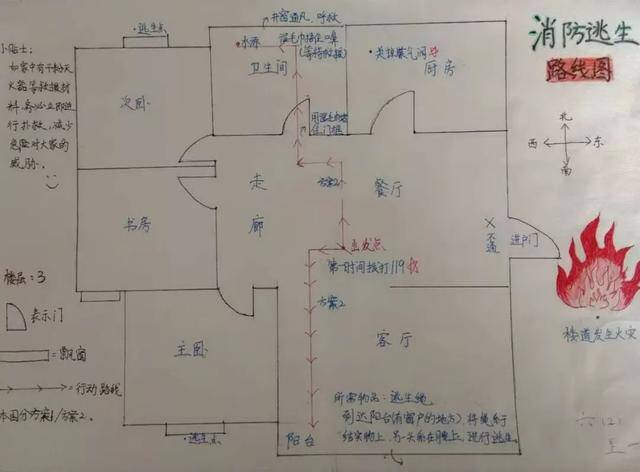 消防逃生
路线图
北
西
东
南
小贴士:
火器等救援材
行扑救,减少
危险对大家的
威胁。
逃生点
次卧
开窗通风,呼救
水源
湿毛巾捂住口鼻
(等待救援)
卫生间
关掉煤气阀
厨房
住门框
书房
走廊
方案2
餐厅
出发点
第一时间拨打119
不通
进户门
楼道发生火灾
楼层:3
表示门
=飘窗
=行动路线
本图分方案1/方案2。
主卧
方案2
客厅
所需物品:逃生绳
到达阳台(有窗户的地方),将绳系于
结实物上,另一头系在腰上,进行逃生
阳台
逃生点
六(2)